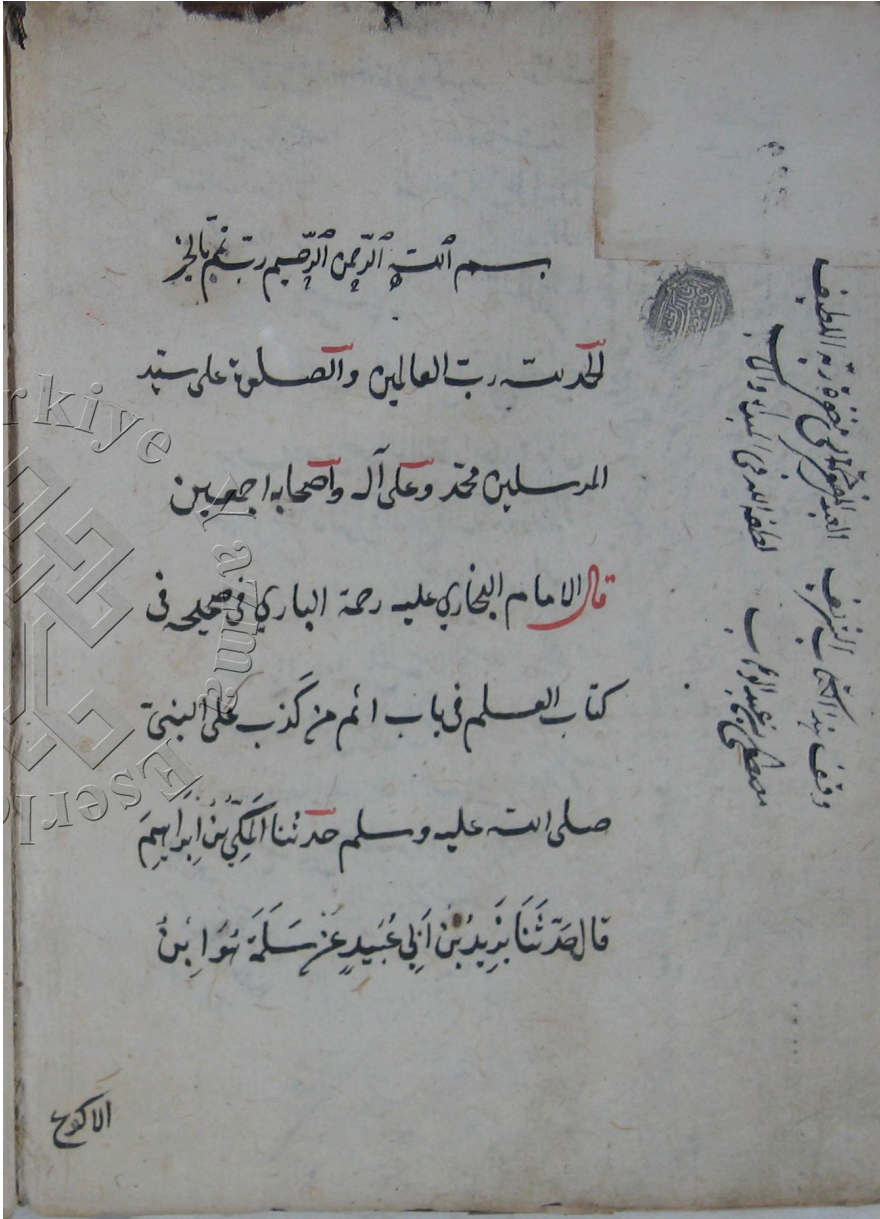 بسم الله الرحمن الرحيم رب تمم بالخير
الحمد لله رب العالمين والصلوة على سيد
المرسلين محمد وعلى آله واصحابه اجمعين
قال الامام البخاري عليه رحمة الباري في صحيحه في
كتاب العلم في باب اثم من كَذب على النبي
صلى الله عليه وسلم حدثنا المَكِّيُّ بْنُ اِبْرَاهِيمَ
قال حَدَّثَنَا يَزِيدُ بْنُ اَبِي عُبَيْدٍ عَنْ سَلَمَةَ هُوَ ابْنُ
الاكوع
وقف هذا الكتاب الشريف العبد الى ربه اللطيف
مصطفى بن عبد الوهاب لطفه الله في المبدأ والمآب
Türkiye Yazma Eserler